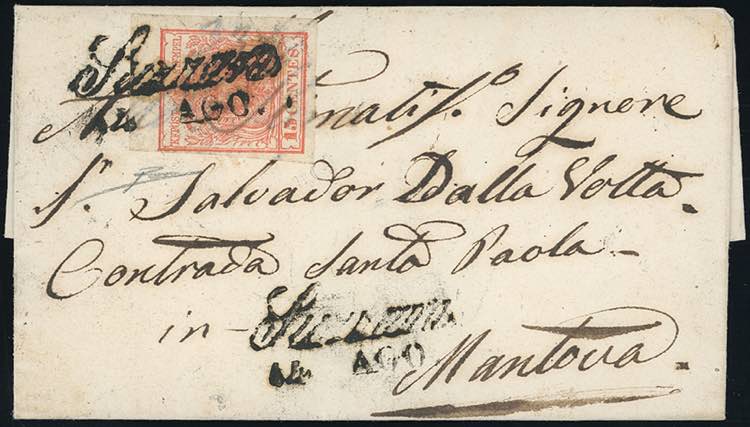 Suzzara
AGO.
KKPOST-STEMPEL
15 CENTES.
Signore
S.r Salvador Dalla Volta.
Contrada Santa Paola
in
Suzzara
AGO
Mantova.